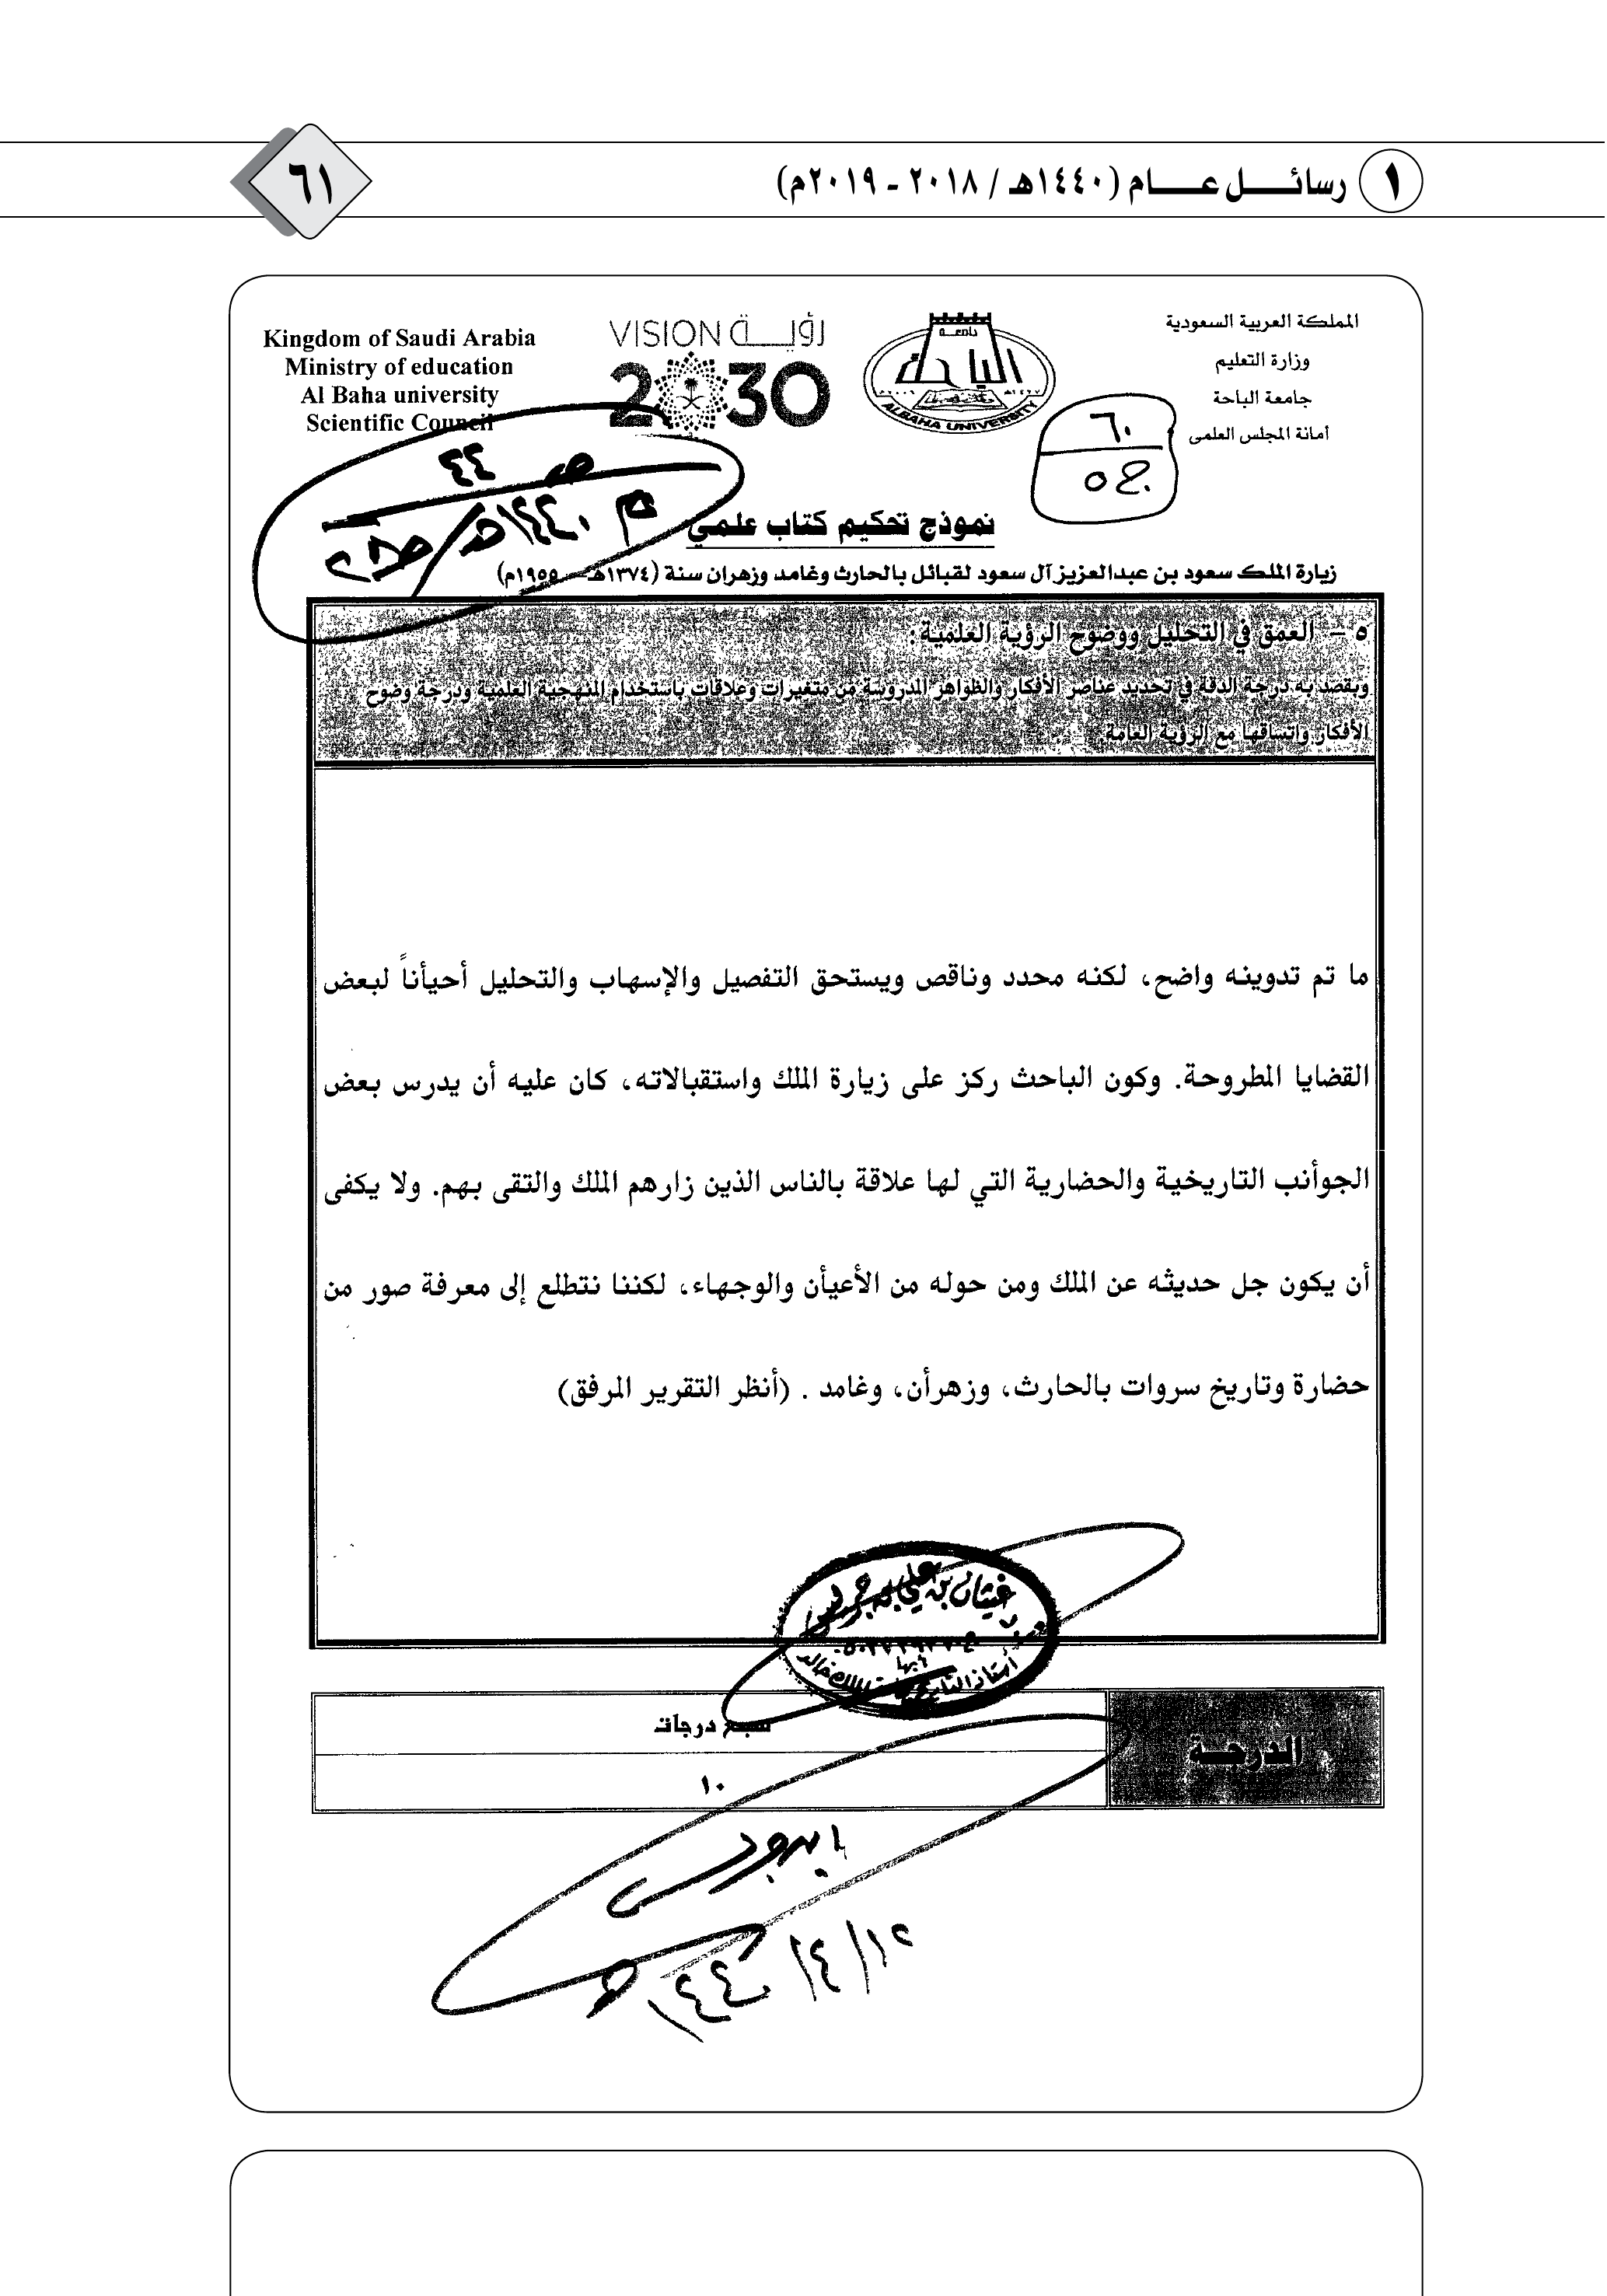 ١ رسائل عام (١٤٤٠هـ / ٢٠١٨ - ٢٠١٩م)
٦١
المملكة العربية السعودية
وزارة التعليم
جامعة الباحة
أمانة المجلس العلمي
جامعة
الباحة
ALBAHA UNIVERSITY
VISION رؤيــة
2030
Kingdom of Saudi Arabia
Ministry of education
Al Baha university
Scientific Council
٦٠
ج٥
ص ٤٤
نموذج تحكيم كتاب علمي
زيارة الملك سعود بن عبدالعزيز آل سعود لقبائل بالحارث وغامد وزهران سنة (١٣٧٤هـ - ١٩٥٥م)
٥ – العمق في التحليل ووضوح الرؤية العلمية:
ويقصد به درجة الدقة في تحديد عناصر الأفكار والظواهر المدروسة من متغيرات وعلاقات باستخدام المنهجية العلمية ودرجة وضوح
الأفكار واتساقها مع الرؤية العامة.
ما تم تدوينه واضح، لكنه محدد وناقص ويستحق التفصيل والإسهاب والتحليل أحيأناً لبعض
القضايا المطروحة. وكون الباحث ركز على زيارة الملك واستقبالاته، كان عليه أن يدرس بعض
الجوأنب التاريخية والحضارية التي لها علاقة بالناس الذين زارهم الملك والتقى بهم. ولا يكفى
أن يكون جل حديثه عن الملك ومن حوله من الأعيأن والوجهاء، لكننا نتطلع إلى معرفة صور من
حضارة وتاريخ سروات بالحارث، وزهرأن، وغامد . (أنظر التقرير المرفق)
غيثان بن علي بن جريس
أبها
أستاذ التاريخ الملك خالد
الدرجـة
سبع درجات
١٠
ابن جريس
١٢/٤/١٤٤٠هـ